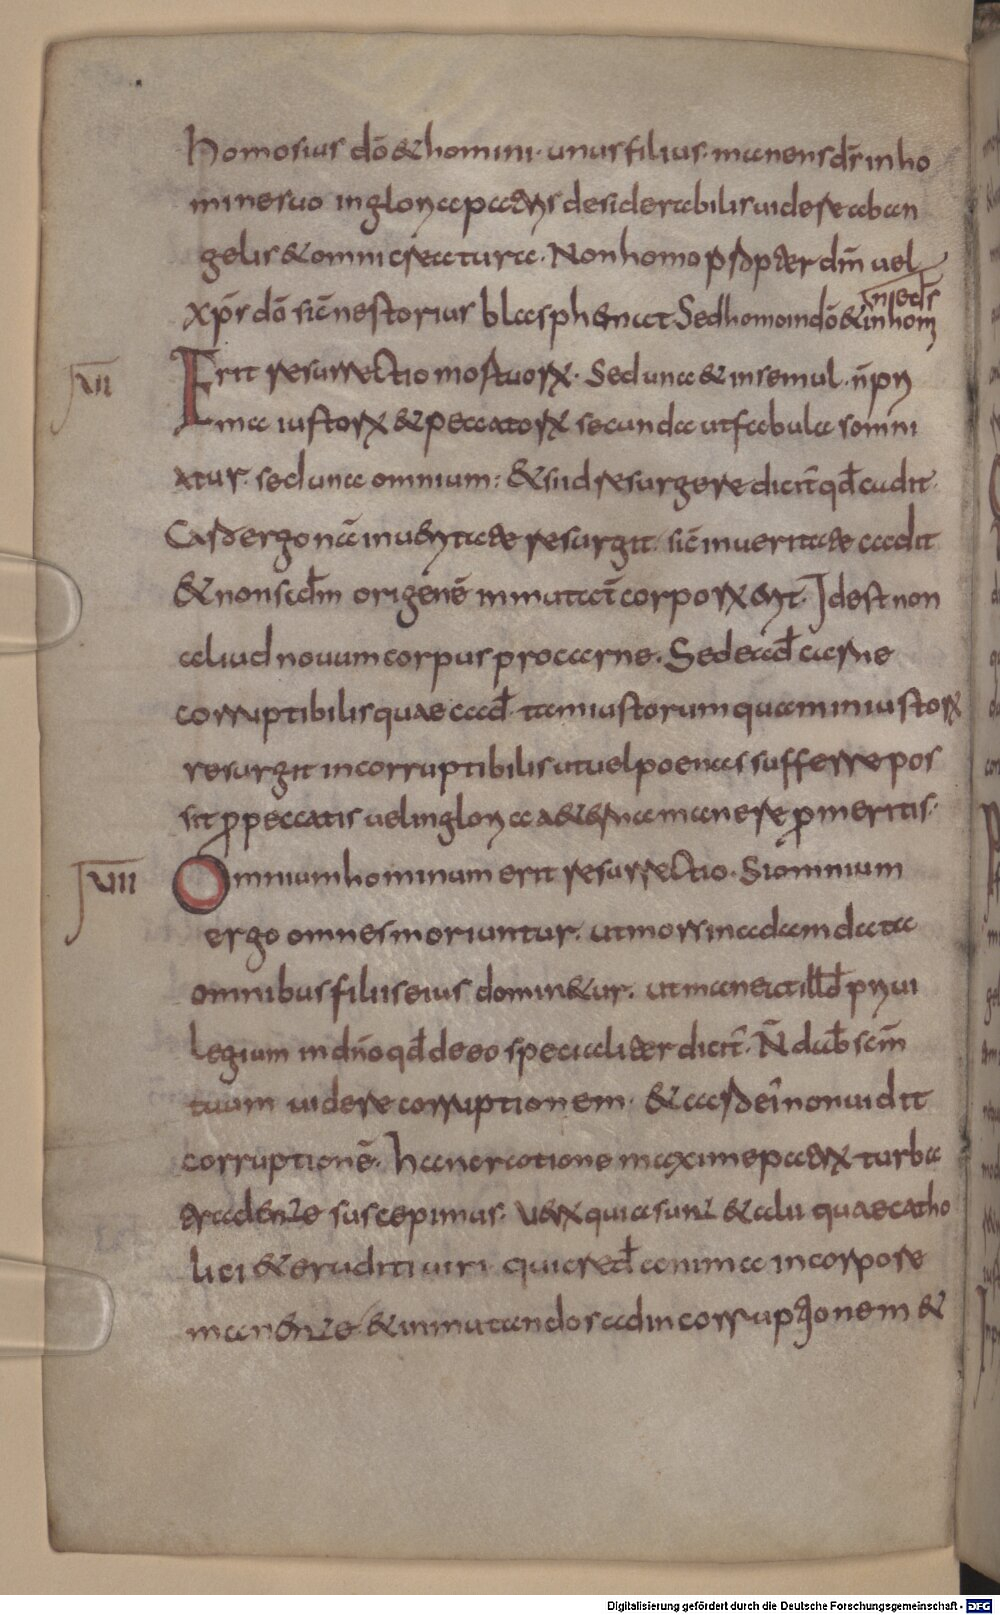 homosius dō & homini · unus filius · manens dr̄ in ho
mine suo in gloria patris desiderabilis uidere ab an
gelis & omni creatura · Non homo propter dm̄ uel
xp̄s dō sic̄ nestorius blasphemat Sed homo in dō & in hom
in se ds̄
VII
Erit resurrectio mortuorum · Sed una & in semul · n̄ pri
ma iustorum & peccatorum secunda ut fabula somni
atur · sed una omnium : & si id resurgere dicit̄ qd̄ cadit ·
Caro ergo nr̄a in ueritate resurgit · sic̄ in ueritate cadit
& non secdm̄ origenē inmutat̄ corporum erit · Idest non
aliud nouum corpus pro carne · Sed eadē carne
corruptibilis quae cadit · tam iustorum quam iniustorum
resurgit incorruptibilis ut uel poenas sufferre pos
sit ꝓ peccatis uel in gloria aeterna manere ꝓ meritis ·
VIII
Omnium hominum erit resurrectio · Si omnium
ergo omnes moriuntur · ut mors in adam data
omnibus filiis eius dominetur · ut maneat illud priui
legium in dn̄o qd̄ de eo specialiter dicit̄ · N̄ dab̄ scm̄
tuum uidere corruptionem · & caro ei̅ non uidit
corruptionē · hanc rationē maxime patrum turba
tradente suscepimus · Uerum quia sunt & alii quae catho
lici & eruditi uiri qui cred̄ anima in corpore
manente & inmutandos ad incorruptionem &
Digitalisierung gefördert durch die Deutsche Forschungsgemeinschaft - DFG